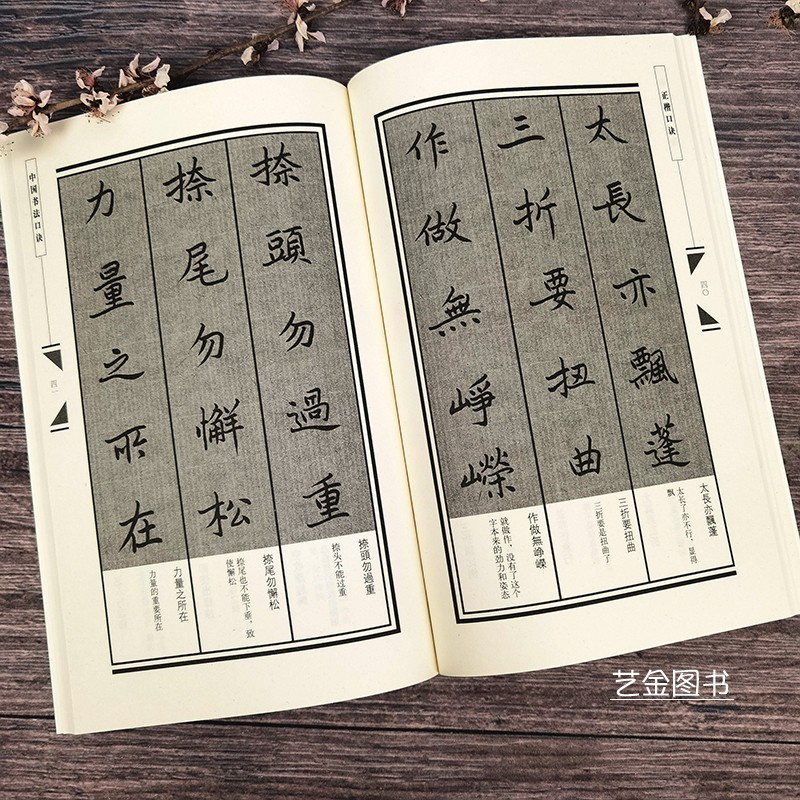 正楷口诀
四〇
太長亦飄蓬
三折要扭曲
作做無崢嶸
太長亦飄蓬
太长了亦不行，显得
飘
三折要扭曲
三折要是扭曲了
作做無崢嶸
就做作，没有了这个
字本来的効力和姿态
捺頭勿過重
捺尾勿懈松
力量之所在
捺頭勿過重
捺头不能过重
捺尾勿懈松
捺尾也不能下垂，致
使懈松
力量之所在
力量的重要所在
中国书法口诀
四一
艺金图书